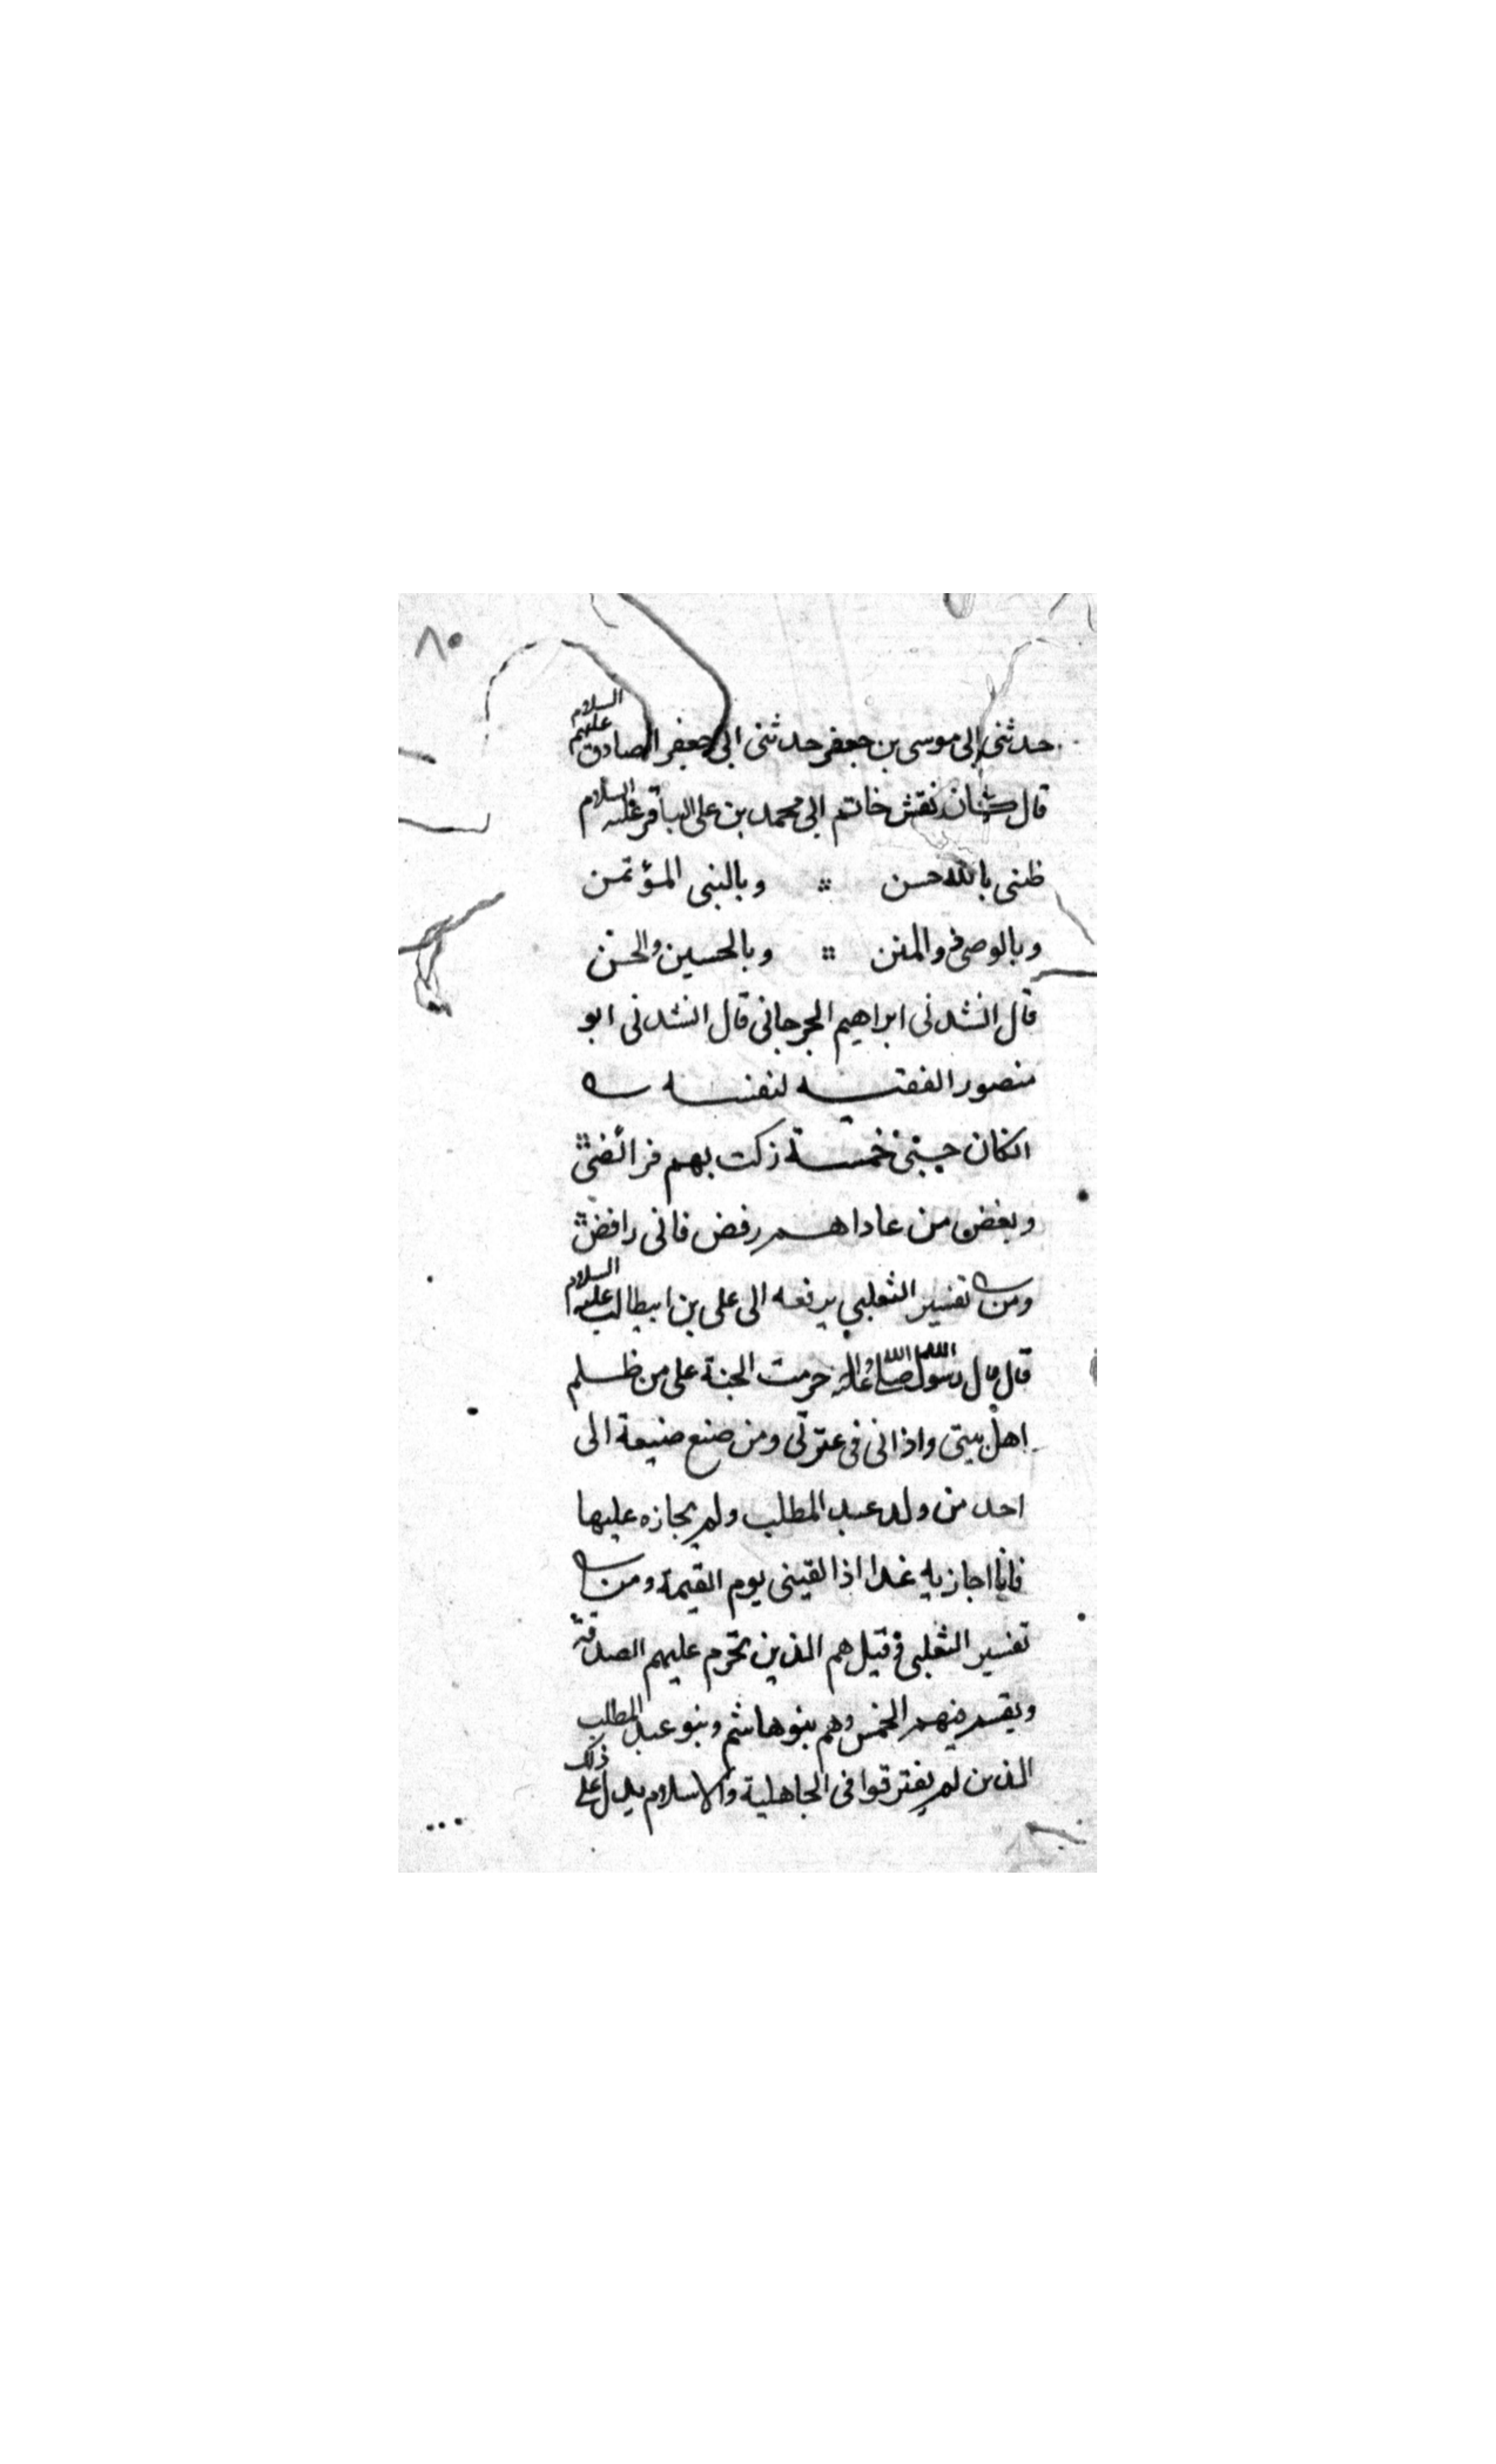 ٨٠
حدثنى ابى موسى بن جعفر حدثنى ابى جعفر الصادق عليهم السلام
قال كان نقش خاتم ابى محمد بن على الباقر عليه السلام
ظنى بالله حسن ∴ وبالنبى المؤتمن
وبالوصى ذو المنن ∴ وبالحسين والحسن
قال انشدنى ابراهيم الجرجانى قال انشدنى ابو
منصور الفقيه لنفسه
انكان حبى خمسة زكت بهم فرائضى
وبغض من عاداهم رفض فانى رافضى
ومن تفسير الثعلبى يرفعه الى على بن ابيطالب عليه السلام
قال قال رسول الله صلى الله عليه واله حرمت الجنة على من ظلم
اهل بيتى واذانى فى عترتى ومن صنع صنيعة الى
احد من ولد عبد المطلب ولم يجازه عليها
فانا اجازيه غدا اذا لقينى يوم القيمة ومن
تفسير الثعلبى وقيل هم الذين تحرم عليهم الصدقة
ويقسم فيهم الخمس وهم بنو هاشم وبنو عبد المطلب
الذين لم يفترقوا فى الجاهلية والاسلام يدل على ذلك